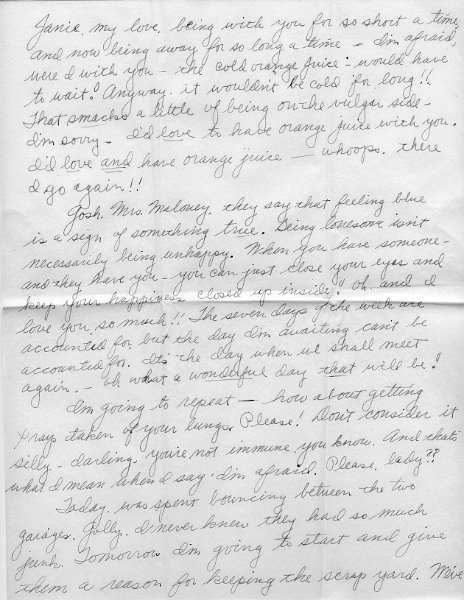 Janie, my love, being with you for so short a time,
And now being away for so long a time - I'm afraid,
were I with you - the cold orange juice would have
to wait! Anyway it wouldn't be cold for long!!
That smacks a little of being on the vulgar side -
I'm sorry - I'd love to have orange juice with you.
I'd love and have orange juice — whoops, there
I go again!!
Gosh, Mrs. Maloney, they say that feeling blue
is a sign of something true. Being lonesome isn't
necessarily being unhappy. When you have someone -
and they have you - you can just close your eyes and
keep your happiness closed up inside! Oh and I
love you, so much!! The seven days of the week are
accounted for but the day I'm awaiting can't be
accounted for. It's the day when we shall meet
again. - Oh what a wonderful day that will be!
I'm going to repeat — how about getting
Xrays taken of your lungs. Please! Don't consider it
silly - darling, you're not immune, you know. And that's
what I mean when I say I'm afraid. Please, baby??
Today, was spent bouncing between the two
garages. Golly, I never knew they had so much
junk. Tomorrow I'm going to start and give
them a reason for keeping the scrap yard. We've